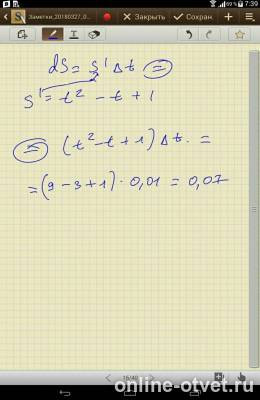 7:39
Заметки_20180327_0...
Закрыть
Сохран.
dS = S' Δt =
S' = t² - t + 1
= (t² - t + 1) Δt. =
= (9 - 3 + 1) · 0,01 = 0,07
online-otvet.ru